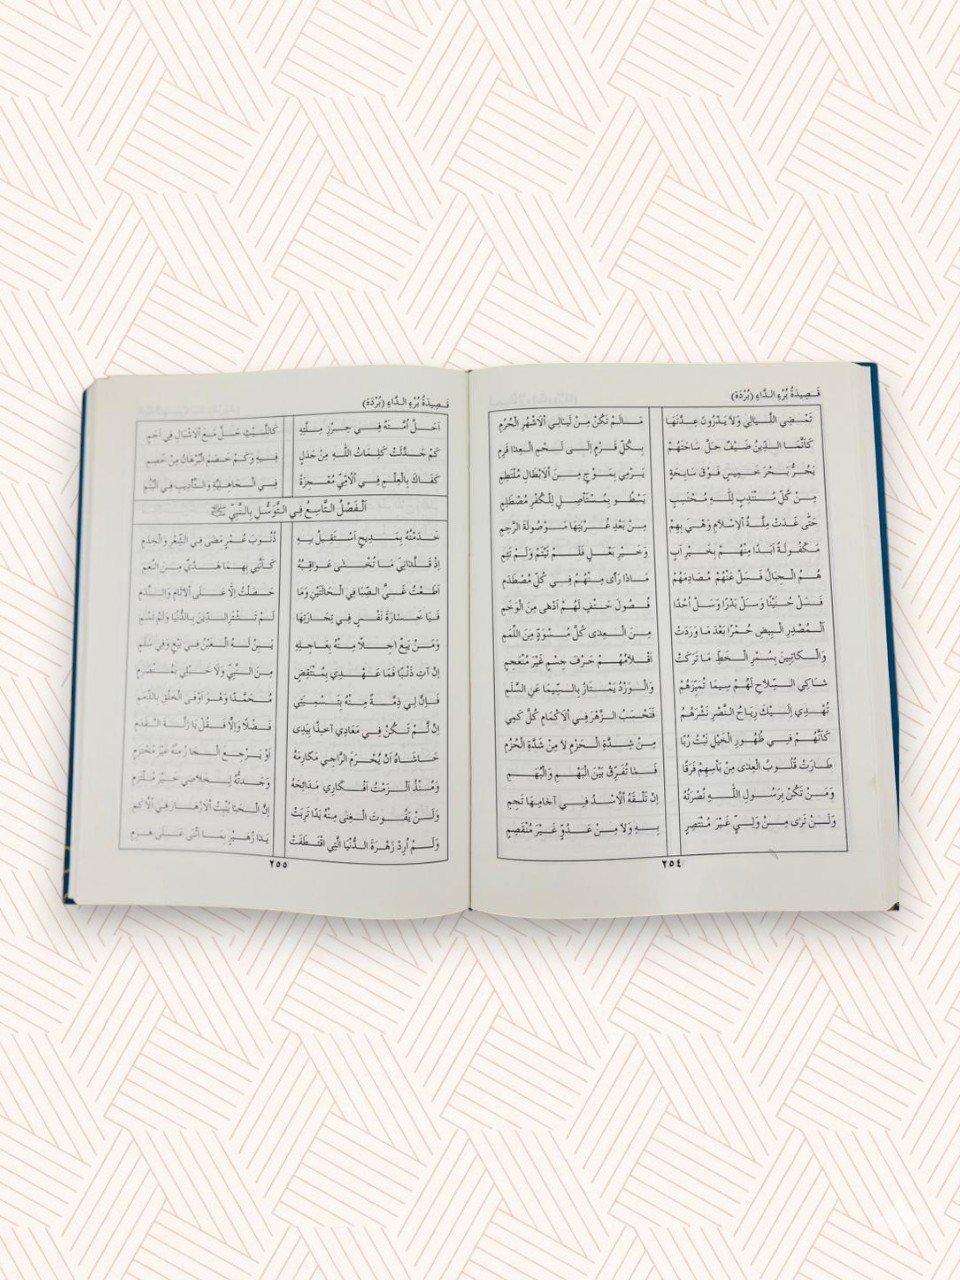 قَصِيدَةُ بُرْءِ الدَّاءِ (بُرْدَة)
تَمْضِي اللَّيَالِي وَلَا يَدْرُونَ عِدَّتَهَا مَالَمْ تَكُنْ مِنْ لَيَالِي الْاَشْهُرِ الْحُرُمِ
كَاَنَّمَا الدِّينُ ضَيْفٌ حَلَّ سَاحَتَهُمْ بِكُلِّ قَرْمٍ اِلَى لَحْمِ الْعِدَا قَرِمِ
يَجُرُّ بَحْرَ خَمِيسٍ فَوْقَ سَابِحَةٍ يَرْمِي بِمَوْجٍ مِنَ الْاَبْطَالِ مُلْتَطِمِ
مِنْ كُلِّ مُنْتَدِبٍ لِلّٰهِ مُحْتَسِبٍ يَسْطُو بِمُسْتَأْصِلٍ لِلْكُفْرِ مُصْطَلِمِ
حَتَّى غَدَتْ مِلَّةُ الْاِسْلَامِ وَهْيَ بِهِمْ مِنْ بَعْدِ غُرْبَتِهَا مَوْصُولَةَ الرَّحِمِ
مَكْفُولَةً اَبَدًا مِنْهُمْ بِخَيْرِ اَبٍ وَخَيْرِ بَعْلٍ فَلَمْ تَيْتَمْ وَلَمْ تَئِمِ
هُمُ الْجِبَالُ فَسَلْ عَنْهُمْ مُصَادِمَهُمْ مَاذَا رَأَى مِنْهُمْ فِي كُلِّ مُصْطَدَمِ
فَسَلْ حُنَيْنًا وَسَلْ بَدْرًا وَسَلْ اُحُدًا فُصُولَ حَتْفٍ لَهُمْ اَدْهَى مِنَ الْوَخَمِ
اَلْمُصْدِرِي الْبِيضِ حُمْرًا بَعْدَ مَا وَرَدَتْ مِنَ الْعِدَى كُلَّ مُسْوَدٍّ مِنَ اللِّمَمِ
وَالْكَاتِبِينَ بِسُمْرِ الْخَطِّ مَا تَرَكَتْ اَقْلَامُهُمْ حَرْفَ جِسْمٍ غَيْرَ مُنْعَجِمِ
شَاكِي السِّلَاحِ لَهُمْ سِيمَا تُمَيِّزُهُمْ وَالْوَرْدُ يَمْتَازُ بِالسِّيمَا عَنِ السَّلَمِ
تُهْدِي اِلَيْكَ رِيَاحُ النَّصْرِ نَشْرَهُمُ فَتَحْسَبُ الزَّهْرَ فِي الْاَكْمَامِ كُلَّ كَمِي
كَاَنَّهُمْ فِي ظُهُورِ الْخَيْلِ نَبْتُ رُبًا مِنْ شِدَّةِ الْحَزْمِ لَا مِنْ شِدَّةِ الْحُزُمِ
طَارَتْ قُلُوبُ الْعِدَى مِنْ بَأْسِهِمْ فَرَقًا فَمَا تُفَرِّقُ بَيْنَ الْبَهْمِ وَالْبُهَمِ
وَمَنْ تَكُنْ بِرَسُولِ اللّٰهِ نُصْرَتُهُ اِنْ تَلْقَهُ الْاُسْدُ فِي اٰجَامِهَا تَجِمِ
وَلَنْ تَرَى مِنْ وَلِيٍّ غَيْرَ مُنْتَصِرٍ بِهِ وَلَا مِنْ عَدُوٍّ غَيْرَ مُنْقَصِمِ
٢٥٤
قَصِيدَةُ بُرْءِ الدَّاءِ (بُرْدَة)
اَحَلَّ اُمَّتَهُ فِي حِرْزِ مِلَّتِهِ كَاللَّيْثِ حَلَّ مَعَ الْاَشْبَالِ فِي اَجَمِ
كَمْ جَدَّلَتْ كَلِمَاتُ اللّٰهِ مِنْ جَدَلٍ فِيهِ وَكَمْ خَصَمَ الْبُرْهَانُ مِنْ خَصِمِ
كَفَاكَ بِالْعِلْمِ فِي الْاُمِّيِّ مُعْجِزَةً فِي الْجَاهِلِيَّةِ وَالتَّأْدِيبِ فِي الْيُتُمِ
اَلْفَصْلُ التَّاسِعُ فِي التَّوَسُّلِ بِالنَّبِيِّ ﷺ
خَدَمْتُهُ بِمَدِيحٍ اَسْتَقِيلُ بِهِ ذُنُوبَ عُمْرٍ مَضَى فِي الشِّعْرِ وَالْخِدَمِ
اِذْ قَلَّدَانِيَ مَا تُخْشَى عَوَاقِبُهُ كَاَنَّنِي بِهِمَا هَدْيٌ مِنَ النَّعَمِ
اَطَعْتُ غَيَّ الصِّبَا فِي الْحَالَتَيْنِ وَمَا حَصَلْتُ اِلَّا عَلَى الْاٰثَامِ وَالنَّدَمِ
فَيَا خَسَارَةَ نَفْسٍ فِي تِجَارَتِهَا لَمْ تَشْتَرِ الدِّينَ بِالدُّنْيَا وَلَمْ تَسُمِ
وَمَنْ يَبِعْ اٰجِلًا مِنْهُ بِعَاجِلِهِ يَبِنْ لَهُ الْغَبْنُ فِي بَيْعٍ وَفِي سَلَمِ
اِنْ اٰتِ ذَنْبًا فَمَا عَهْدِي بِمُنْتَقِضٍ مِنَ النَّبِيِّ وَلَا حَبْلِي بِمُنْصَرِمِ
فَاِنَّ لِي ذِمَّةً مِنْهُ بِتَسْمِيَتِي مُحَمَّدًا وَهُوَ اَوْفَى الْخَلْقِ بِالذِّمَمِ
اِنْ لَمْ تَكُنْ فِي مَعَادِي اٰخِذًا بِيَدِي فَضْلًا وَاِلَّا فَقُلْ يَا زَلَّةَ الْقَدَمِ
حَاشَاهُ اَنْ يُحْرَمَ الرَّاجِي مَكَارِمَهُ اَوْ يَرْجِعَ الْجَارُ مِنْهُ غَيْرَ مُحْتَرَمِ
وَمُنْذُ اَلْزَمْتُ اَفْكَارِي مَدَائِحَهُ وَجَدْتُهُ لِخَلَاصِي خَيْرَ مُلْتَزِمِ
وَلَنْ يَفُوتَ الْغِنَى مِنْهُ يَدًا تَرِبَتْ اِنَّ الْحَيَا يُنْبِتُ الْاَزْهَارَ فِي الْاَكَمِ
وَلَمْ اُرِدْ زَهْرَةَ الدُّنْيَا الَّتِي اقْتَطَفَتْ يَدَا زُهَيْرٍ بِمَا اَثْنَى عَلَى هَرِمِ
٢٥٥